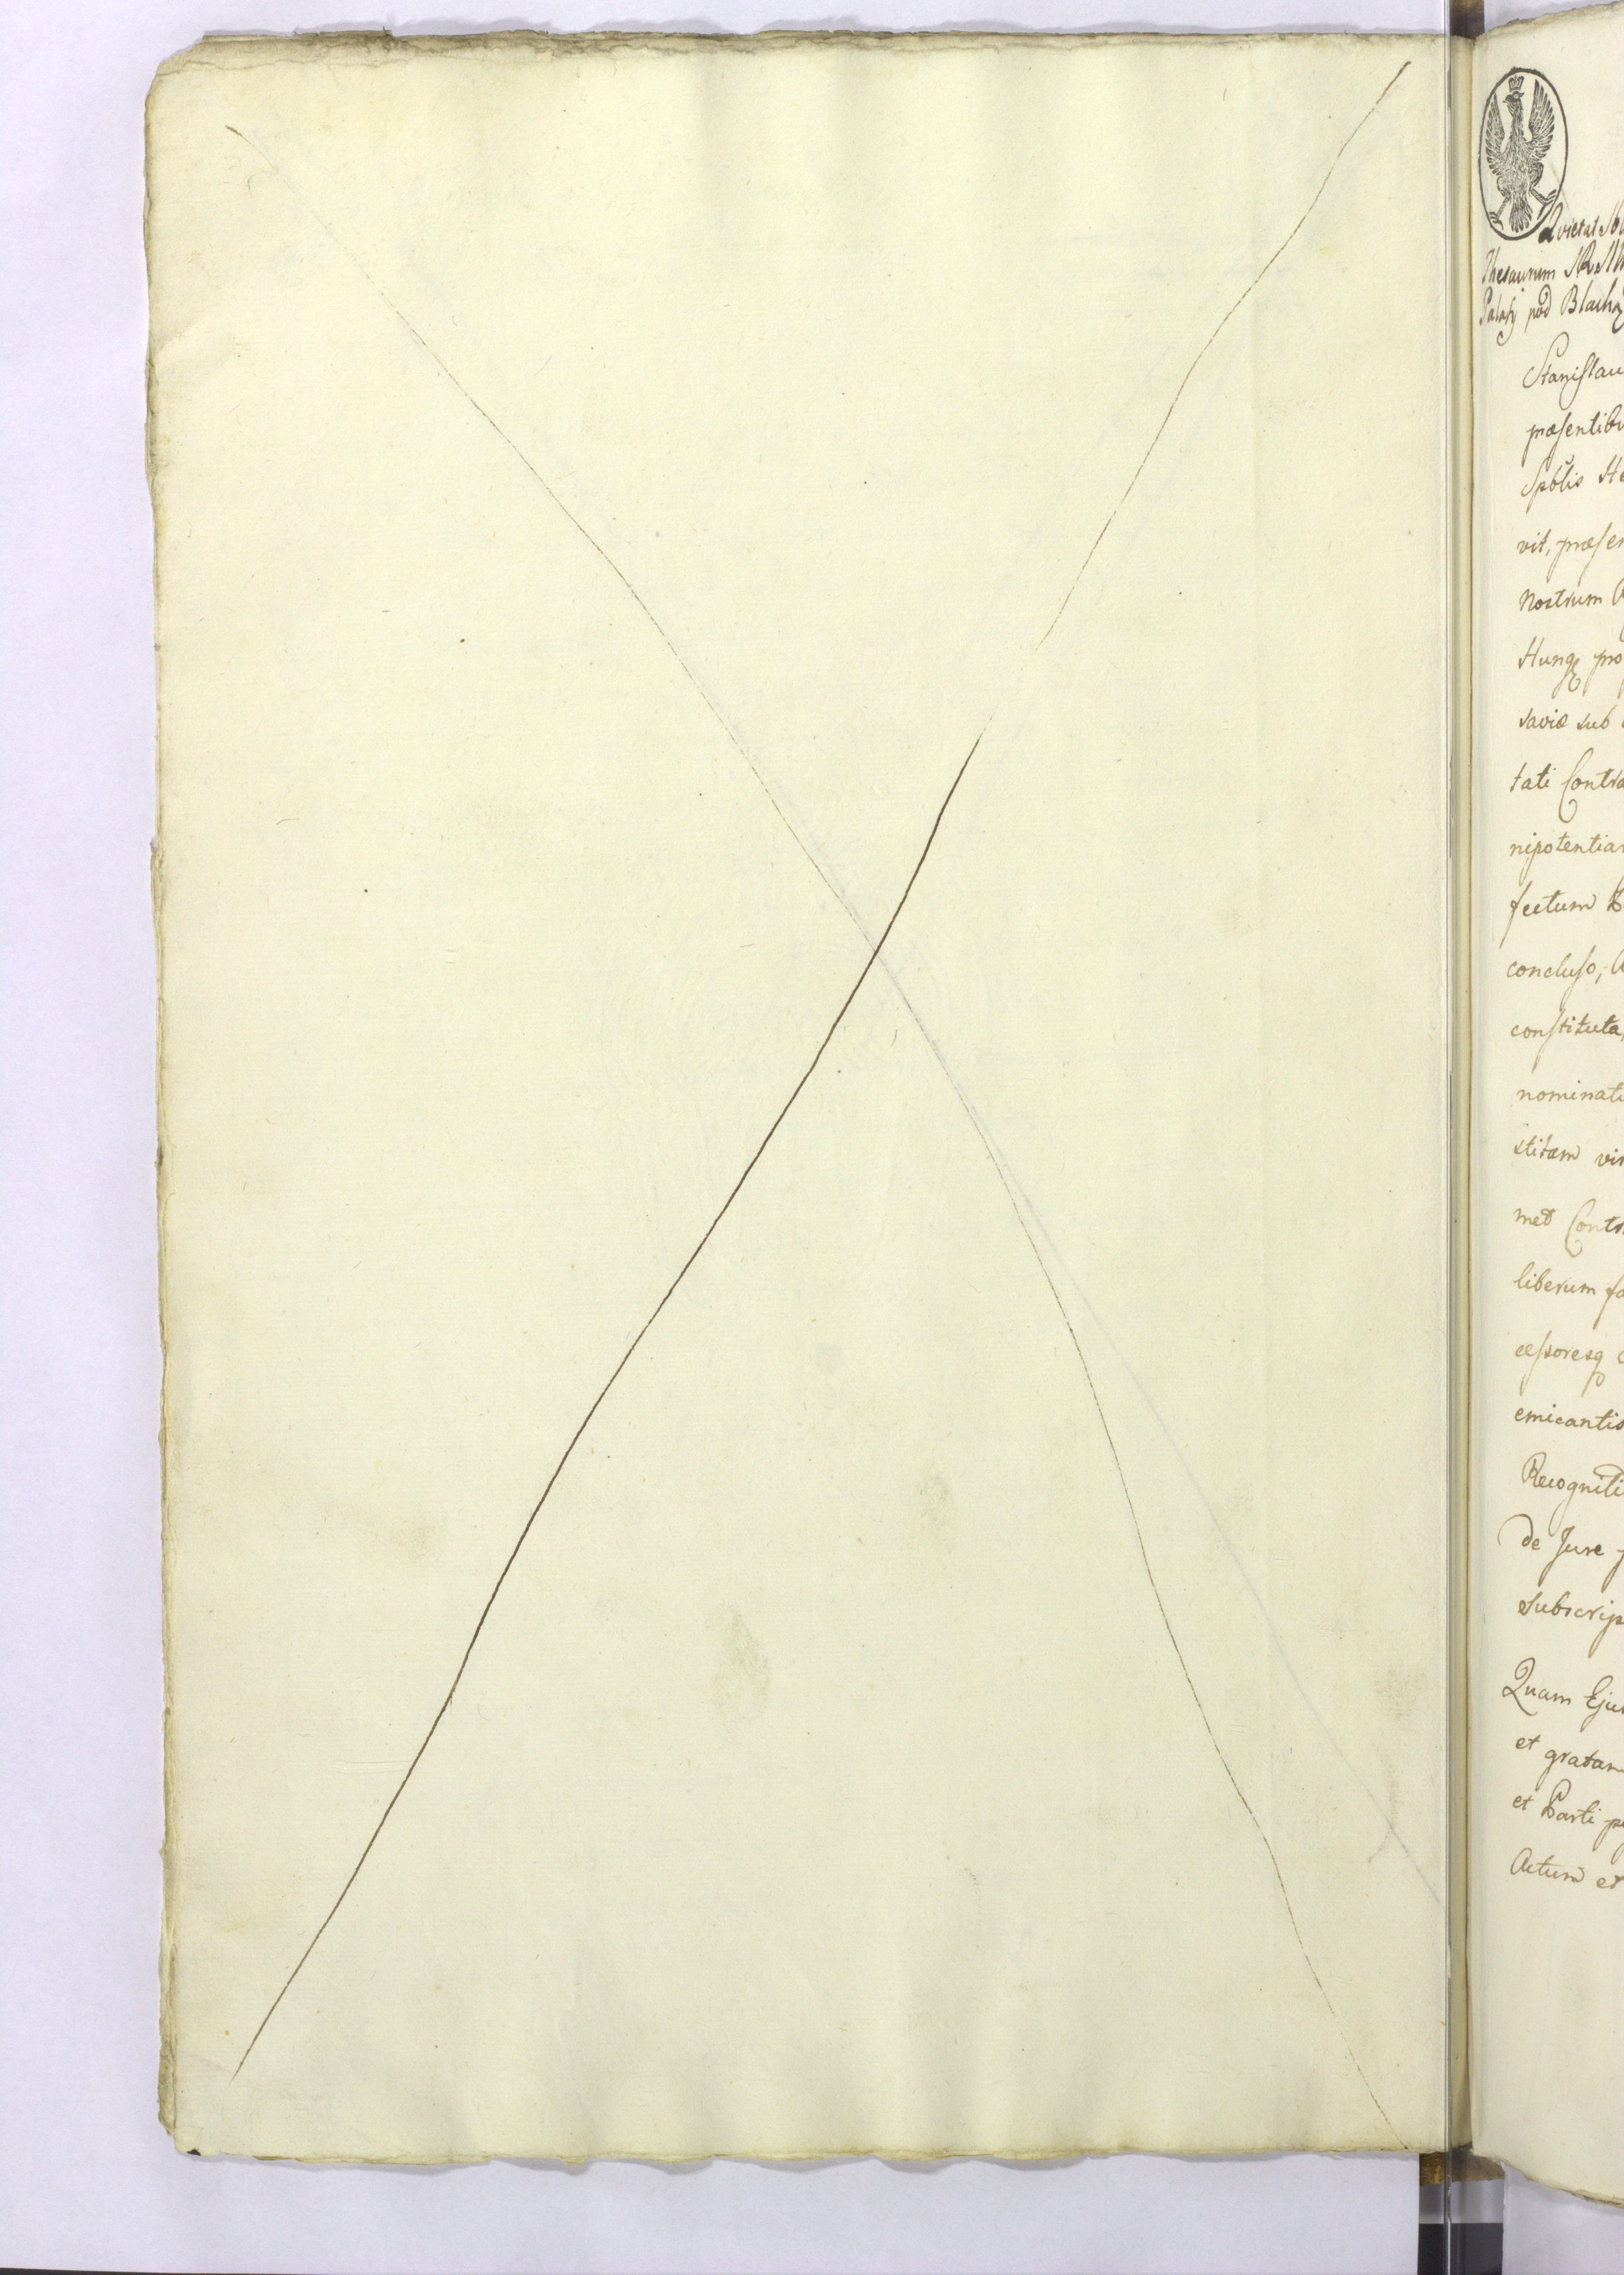 Quietat
Thesaurum
Pałacy pod Blachą
Stanislau
præsentibu
Spblis He
vit, præsen
Nostrum
Hung pro
saviæ sub
tati Contra
nipotentiar
fectum
concluso,
constituta,
nominati
stitam vir
met Contr
liberum fa
cessoresq
emicantis
Recogniti
de Jure
subscrip
Quam Eju
et gratam
et Parti
Actum et